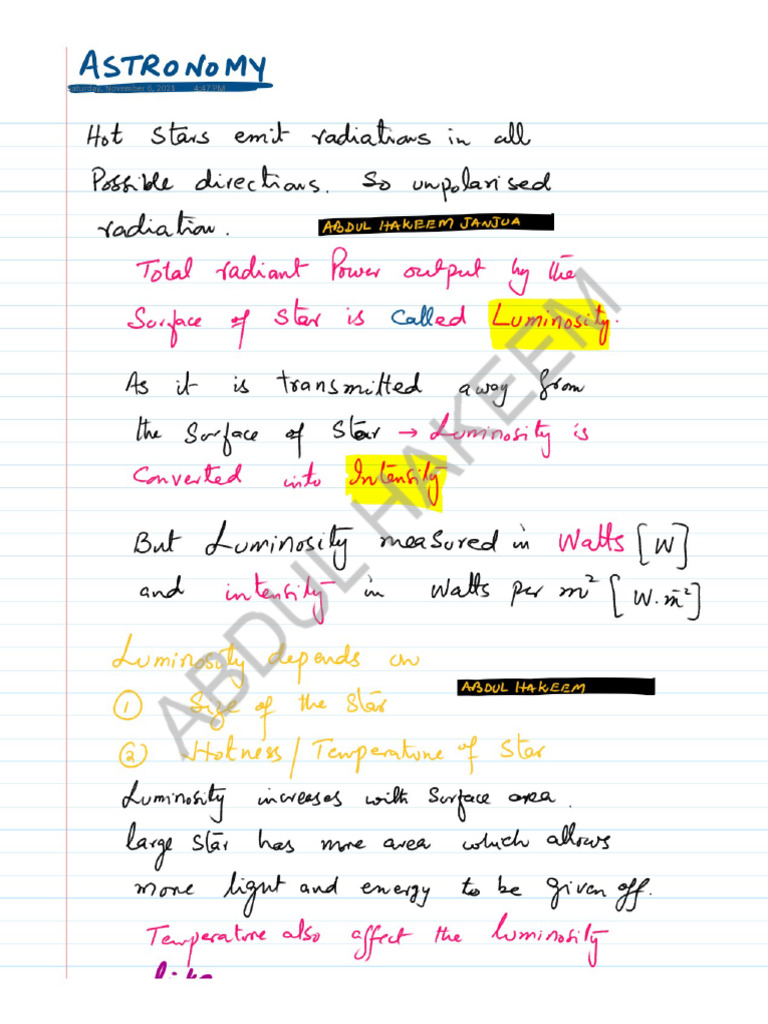 ASTRONOMY
Saturday, November 6, 2021 4:47 PM
Hot stars emit radiations in all
Possible directions. So unpolarised
radiation. ABDUL HAKEEM JANJUA
Total radiant Power output by the
Surface of star is called Luminosity.
As it is transmitted away from
the surface of star → Luminosity is
Converted into Intensity
But Luminosity measured in Watts [W]
and intensity in Watts per m² [W.m⁻²]
Luminosity depends on
ABDUL HAKEEM
① Size of the star
② Hotness/Temperature of star
Luminosity increases with surface area.
large star has more area which allows
more light and energy to be given off.
Temperature also affect the luminosity
like
ABDUL HAKEEM